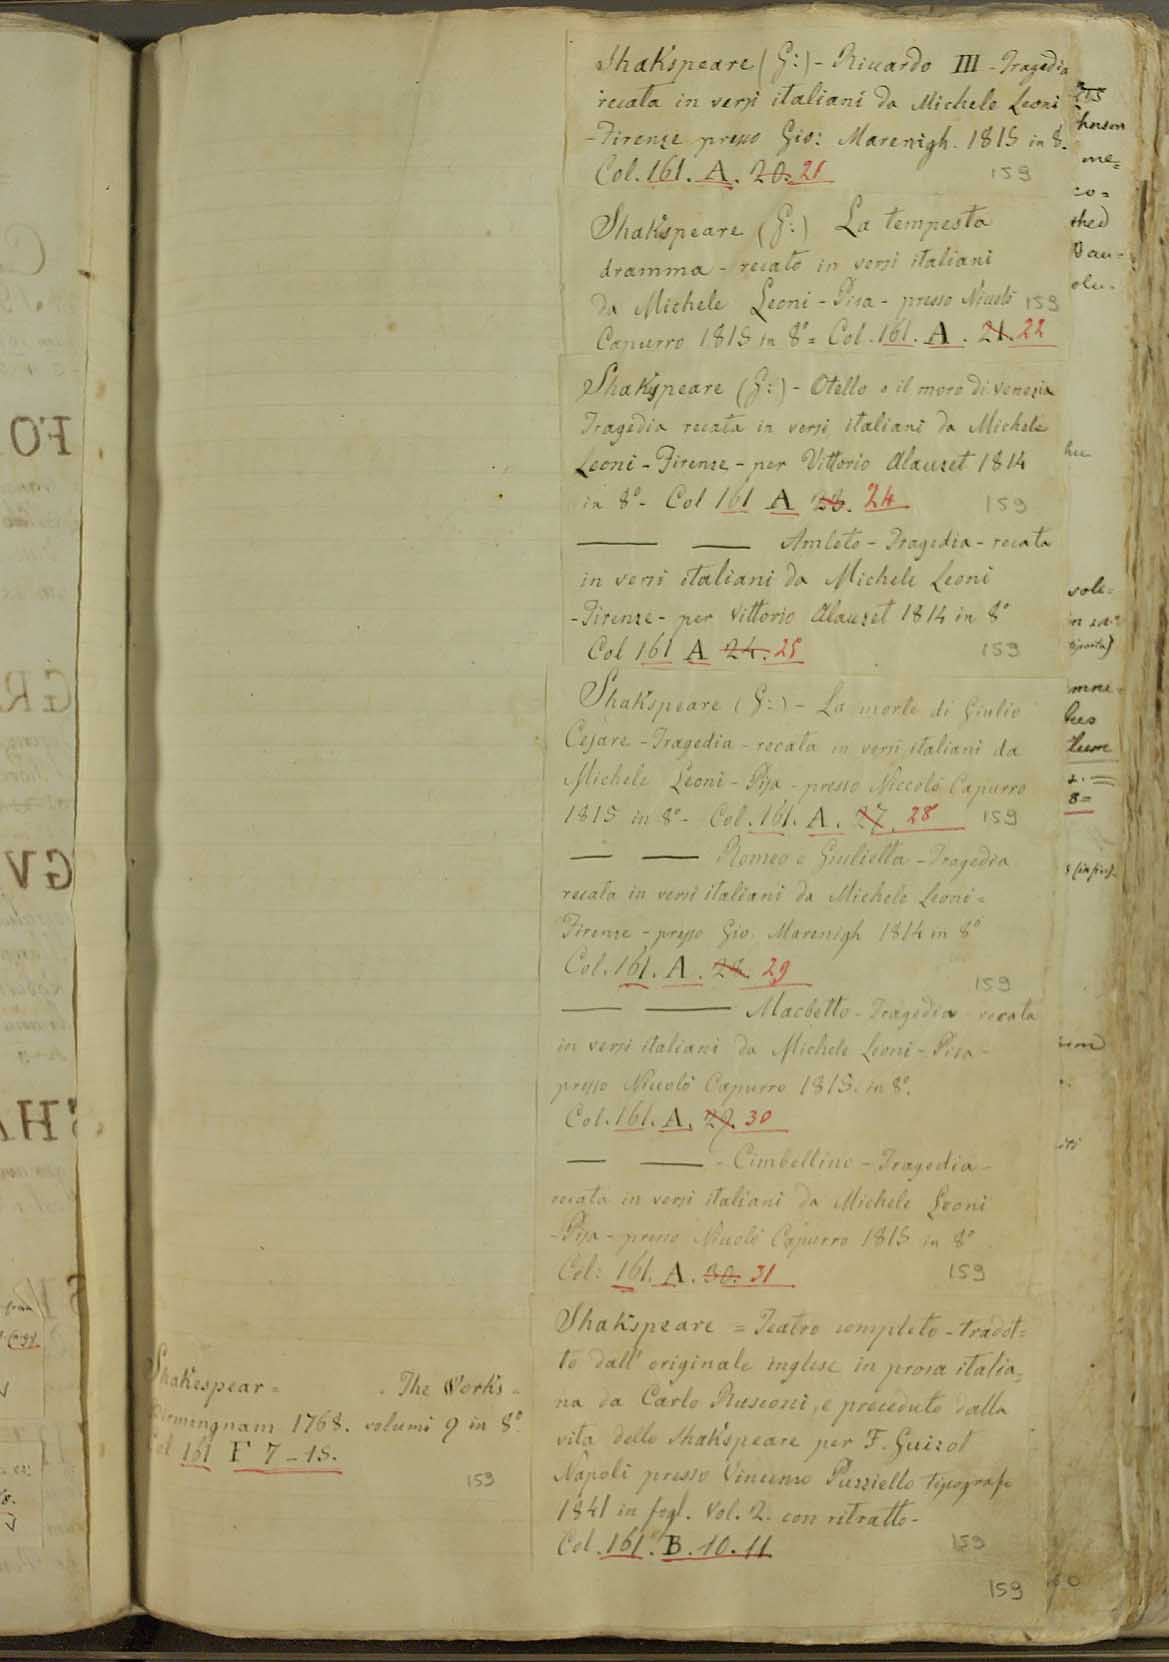 Shakspeare (G:) - Riccardo III - Tragedia
recata in versi italiani da Michele Leoni
- Firenze presso Gio: Marenigh. 1815 in 8.
Col. 161. A. 20. 21
159
Shakspeare (G:) La tempesta
dramma - recato in versi italiani
da Michele Leoni - Pisa - presso Niccolò 159
Capurro 1815 in 8° = Col. 161. A. 21. 22
Shakspeare (G:) - Otello o il moro di Venezia
Tragedia recata in versi italiani da Michele
Leoni - Firenze - per Vittorio Alauzet 1814
in 8° - Col 161 A 23. 24
159
Amleto - Tragedia - recata
in versi italiani da Michele Leoni
- Firenze - per Vittorio Alauzet 1814 in 8°
Col 161 A 24. 25
159
Shakspeare (G:) - La morte di Giulio
Cesare - Tragedia - recata in versi italiani da
Michele Leoni - Pisa - presso Niccolò Capurro
1815 in 8° - Col. 161. A. 27. 28
159
Romeo e Giulietta - Tragedia
recata in versi italiani da Michele Leoni =
Firenze - presso Gio. Marenigh 1814 in 8°
Col. 161. A. 28. 29
159
Macbetto - Tragedia - recata
in versi italiani da Michele Leoni - Pisa -
presso Niccolò Capurro 1815. in 8°.
Col. 161. A. 29. 30
- Cimbellino - Tragedia -
recata in versi italiani da Michele Leoni
- Pisa - presso Niccolò Capurro 1815 in 8°
Col: 161. A. 30. 31
159
Shakspeare = Teatro completo - tradot=
to dall' originale inglese in prosa italia=
na da Carlo Rusconi, e preceduto dalla
vita dello Shakspeare per F. Guizot
Napoli presso Vincenzo Puzziello tipografo
1841 in fogl. Vol. 2. con ritratto -
Col. 161. B. 10. 11
159
159
Shakespear = . The Works -
Birmingnam 1768. volumi 9 in 8°.
Col 161 F 7 - 15.
159